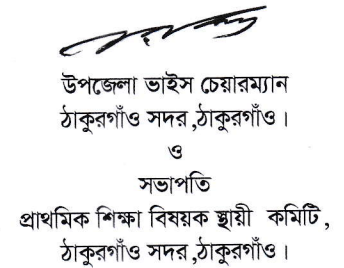 উপজেলা ভাইস চেয়ারম্যান
ঠাকুরগাঁও সদর ,ঠাকুরগাঁও।
ও
সভাপতি
প্রাথমিক শিক্ষা বিষয়ক স্থায়ী কমিটি ,
ঠাকুরগাঁও সদর ,ঠাকুরগাঁও।